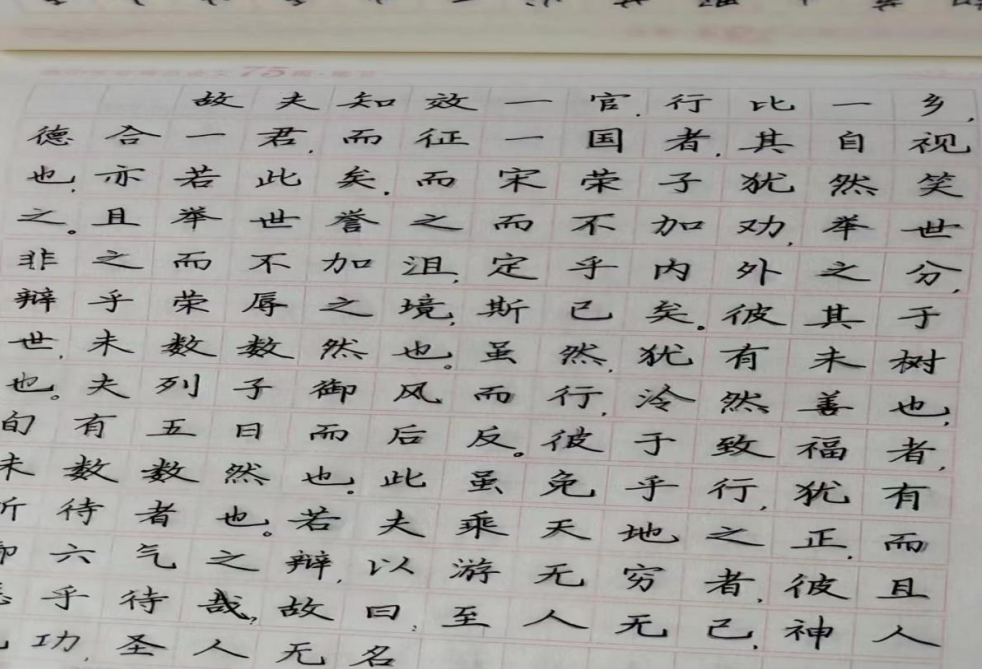 故夫知效一官,行比一乡,
德合一君,而征一国者,其自视
也,亦若此矣,而宋荣子犹然笑
之。且举世誉之而不加劝,举世
非之而不加沮,定乎内外之分,
辩乎荣辱之境,斯已矣。彼其于
世,未数数然也。虽然,犹有未树
也。夫列子御风而行,泠然善也,
旬有五日而后反。彼于致福者,
未数数然也。此虽免乎行,犹有
所待者也。若夫乘天地之正,而
御六气之辩,以游无穷者,彼且
乎待哉,故曰:至人无己,神人
功,圣人无名